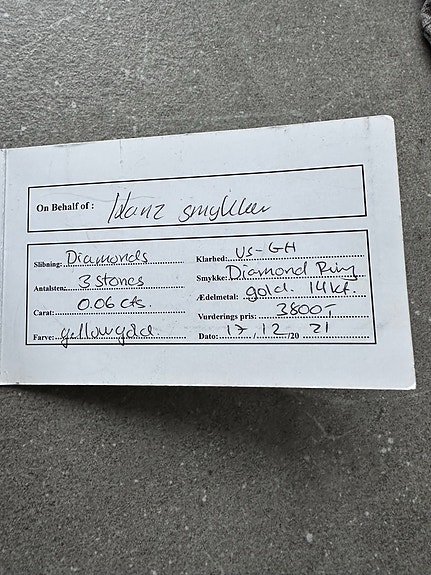 On Behalf of : smykker
Slibning: Diamonds
Antalsten: 3 stones
Carat: 0.06 cts
Farve: yellowgold.
Klarhed: VS-GH
Smykke: Diamond Ring
Ædelmetal: gold. 14kt.
Vurderings pris: 3800,-
Dato: 17 / 12 /20 21